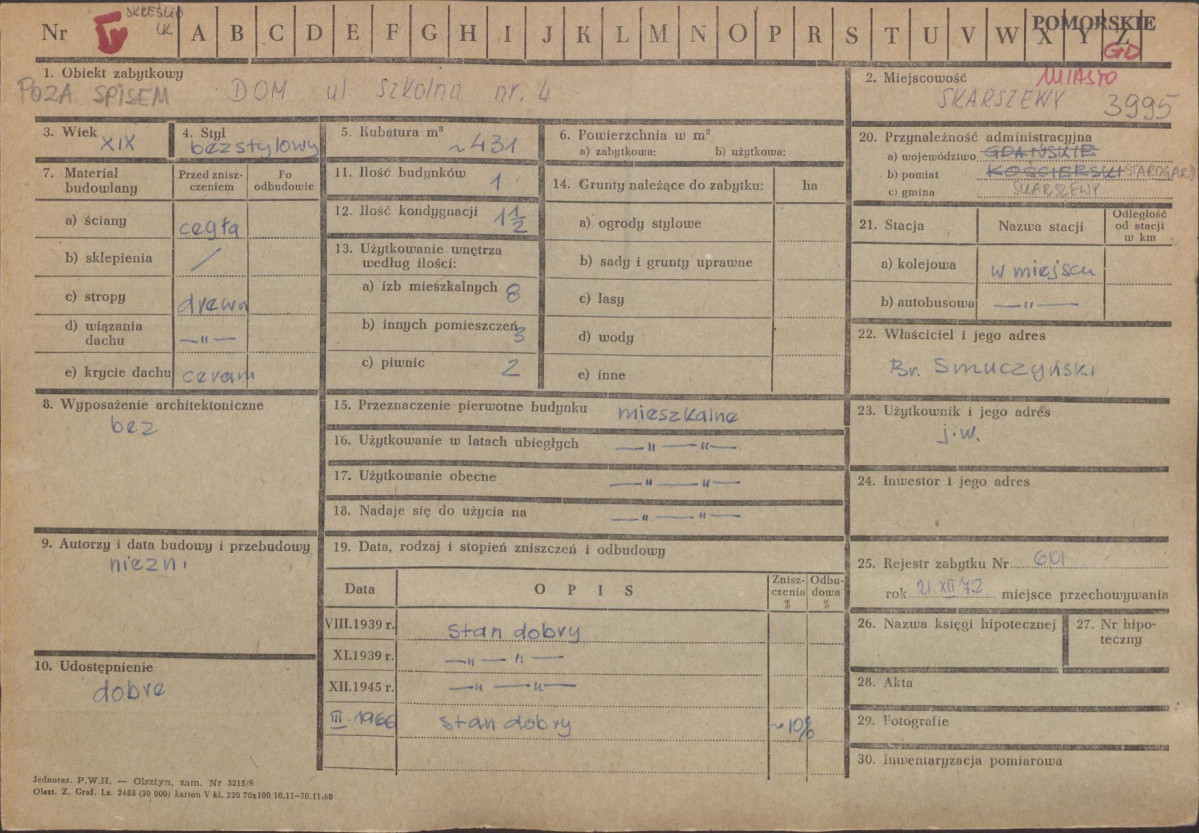 SKREŚLIĆ
Nr IV A B C D E F G H I J K L M N O P R S T U V W X Y Z
POMORSKIE
GD
1. Obiekt zabytkowy
POZA SPISEM DOM ul. Szkolna nr. 4
2. Miejscowość MIASTO
SKARSZEWY 3995
3. Wiek
XIX
4. Styl
bezstylowy
5. Kubatura m³
~431
6. Powierzchnia w m²
a) zabytkowa: b) użytkowa:
7. Materiał budowlany
Przed znisz-
czeniem
Po
odbudowie
a) ściany cegła
b) sklepienia /
c) stropy drewn
d) wiązania
dachu —"—
e) krycie dachu ceram
8. Wyposażenie architektoniczne
bez
9. Autorzy i data budowy i przebudowy
niezni
10. Udostępnienie
dobre
11. Ilość budynków 1
12. Ilość kondygnacji 1 1/2
13. Użytkowanie wnętrza
według ilości:
a) izb mieszkalnych 8
b) innych pomieszczeń 3
c) piwnic 2
14. Grunty należące do zabytku: ha
a) ogrody stylowe
b) sady i grunty uprawne
c) lasy
d) wody
e) inne
15. Przeznaczenie pierwotne budynku mieszkalne
16. Użytkowanie w latach ubiegłych —"—"—
17. Użytkowanie obecne —"—"—
18. Nadaje się do użycia na —"—"—
19. Data, rodzaj i stopień zniszczeń i odbudowy
Data OPIS
Znisz-
czenia
%
Odbu-
dowa
%
VIII.1939 r. stan dobry
XI.1939 r. —"—"—
XII.1945 r. —"—"—
III.1966 stan dobry ~10%
20. Przynależność administracyjna
a) województwo GDAŃSKIE
b) powiat KOŚCIERSKI STAROGARD
c) gmina SKARSZEWY
21. Stacja Nazwa stacji
Odległość
od stacji
w km
a) kolejowa w miejscu
b) autobusowa —"—
22. Właściciel i jego adres
Br. Smuczyński
23. Użytkownik i jego adres
j.w.
24. Inwestor i jego adres
25. Rejestr zabytku Nr 601
rok 21.XII 72 miejsce przechowywania
26. Nazwa księgi hipotecznej
27. Nr hipo-
teczny
28. Akta
29. Fotografie
30. Inwentaryzacja pomiarowa
Jednoraz. P.W.H. — Olsztyn, zam. Nr 3215/S
Olszt. Z. Graf. Lz. 2485 (30 000) karton V kl. 220 70x100 10.11—30.11.60